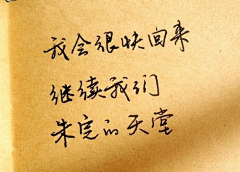 我会很快回来
继续我们
未完的天堂